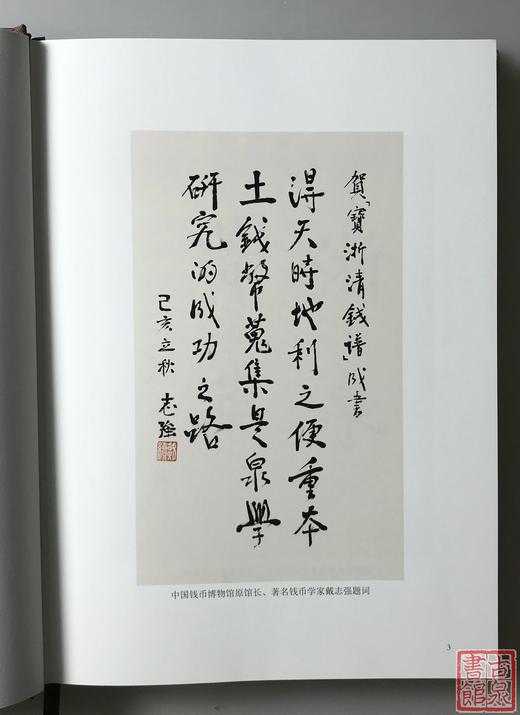 贺「寶浙清钱谱」成書
得天時地利之便重本
土钱幣蒐集是泉學
研究的成功之路
己亥立秋 志强
中国钱币博物馆原馆长、著名钱币学家戴志强题词
3
古泉書館